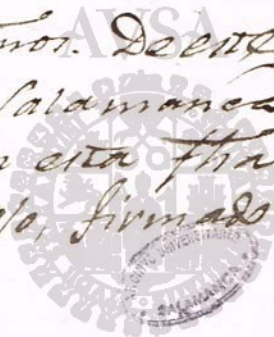 AVSA
mos. De este
Salamanca
n esta fha
yo, firmado
ARCHIVO UNIVERSITARIO
SALAMANCA